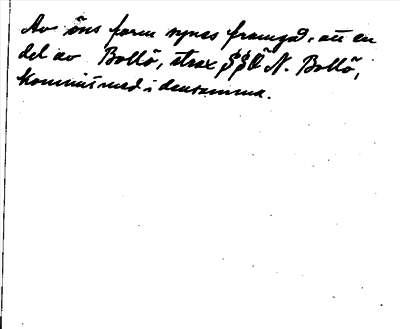 Av öns form synes framgå, att en
del av Bollö, strax SSÖ N. Bollö,
kommit med i densamma.